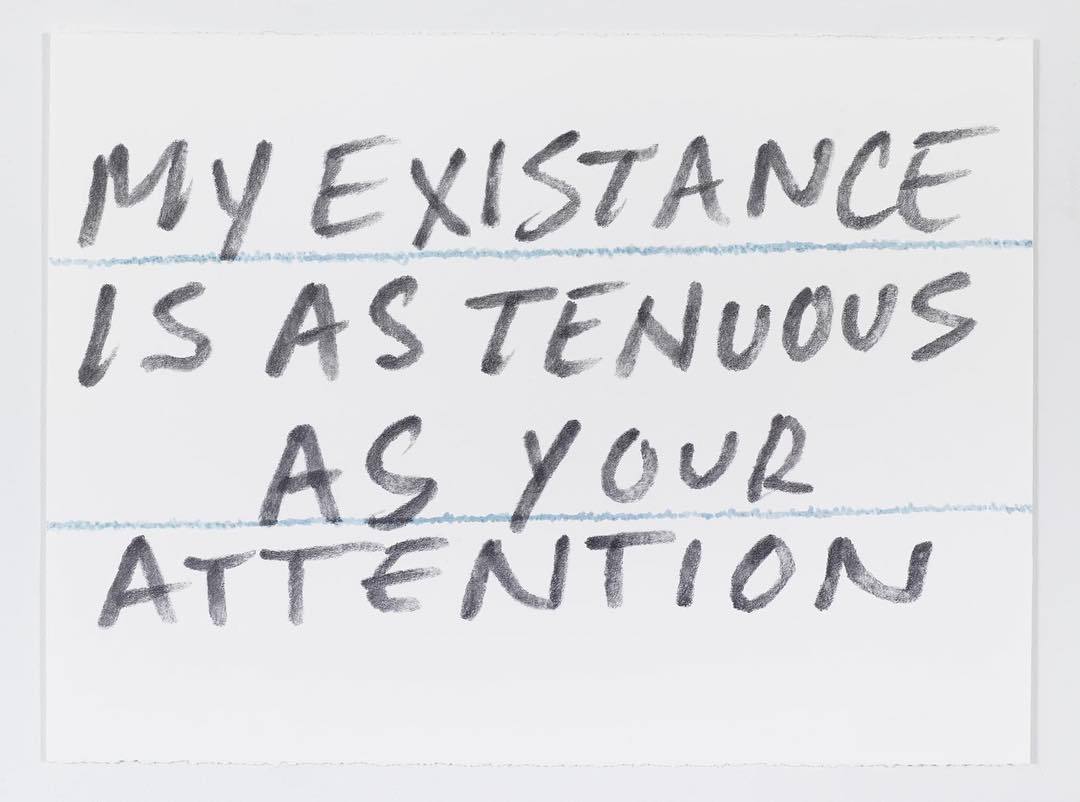 MY EXISTANCE
IS AS TENUOUS
AS YOUR
ATTENTION